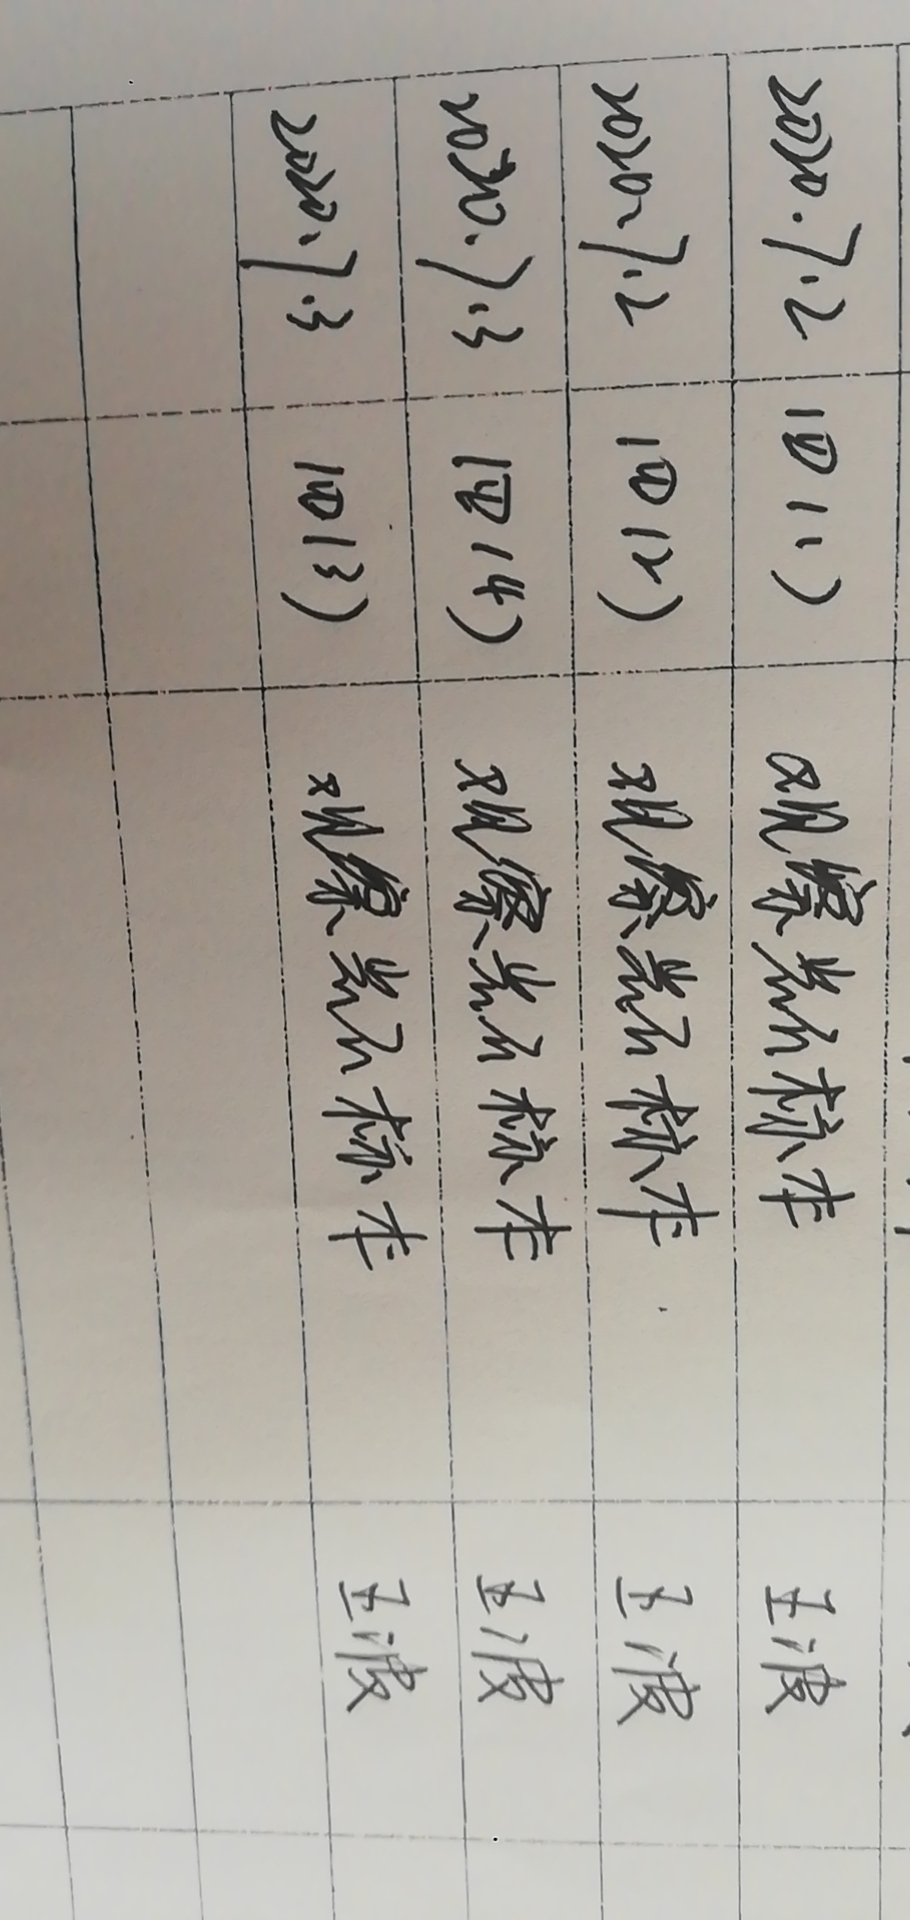 2020.7.2 四(1) 观察岩石标本 王波
2020.7.2 四(2) 观察岩石标本 王波
2020.7.3 四(4) 观察岩石标本 王波
2020.7.3 四(3) 观察岩石标本 王波